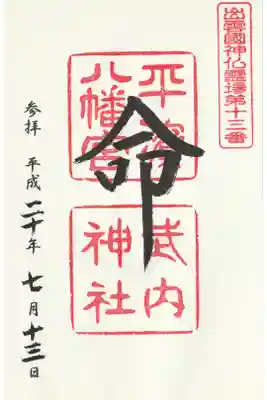 出雲國神仏霊場第十三番
平濱
八幡宮
命
武内
神社
参拝 平成二十年 七月十三日